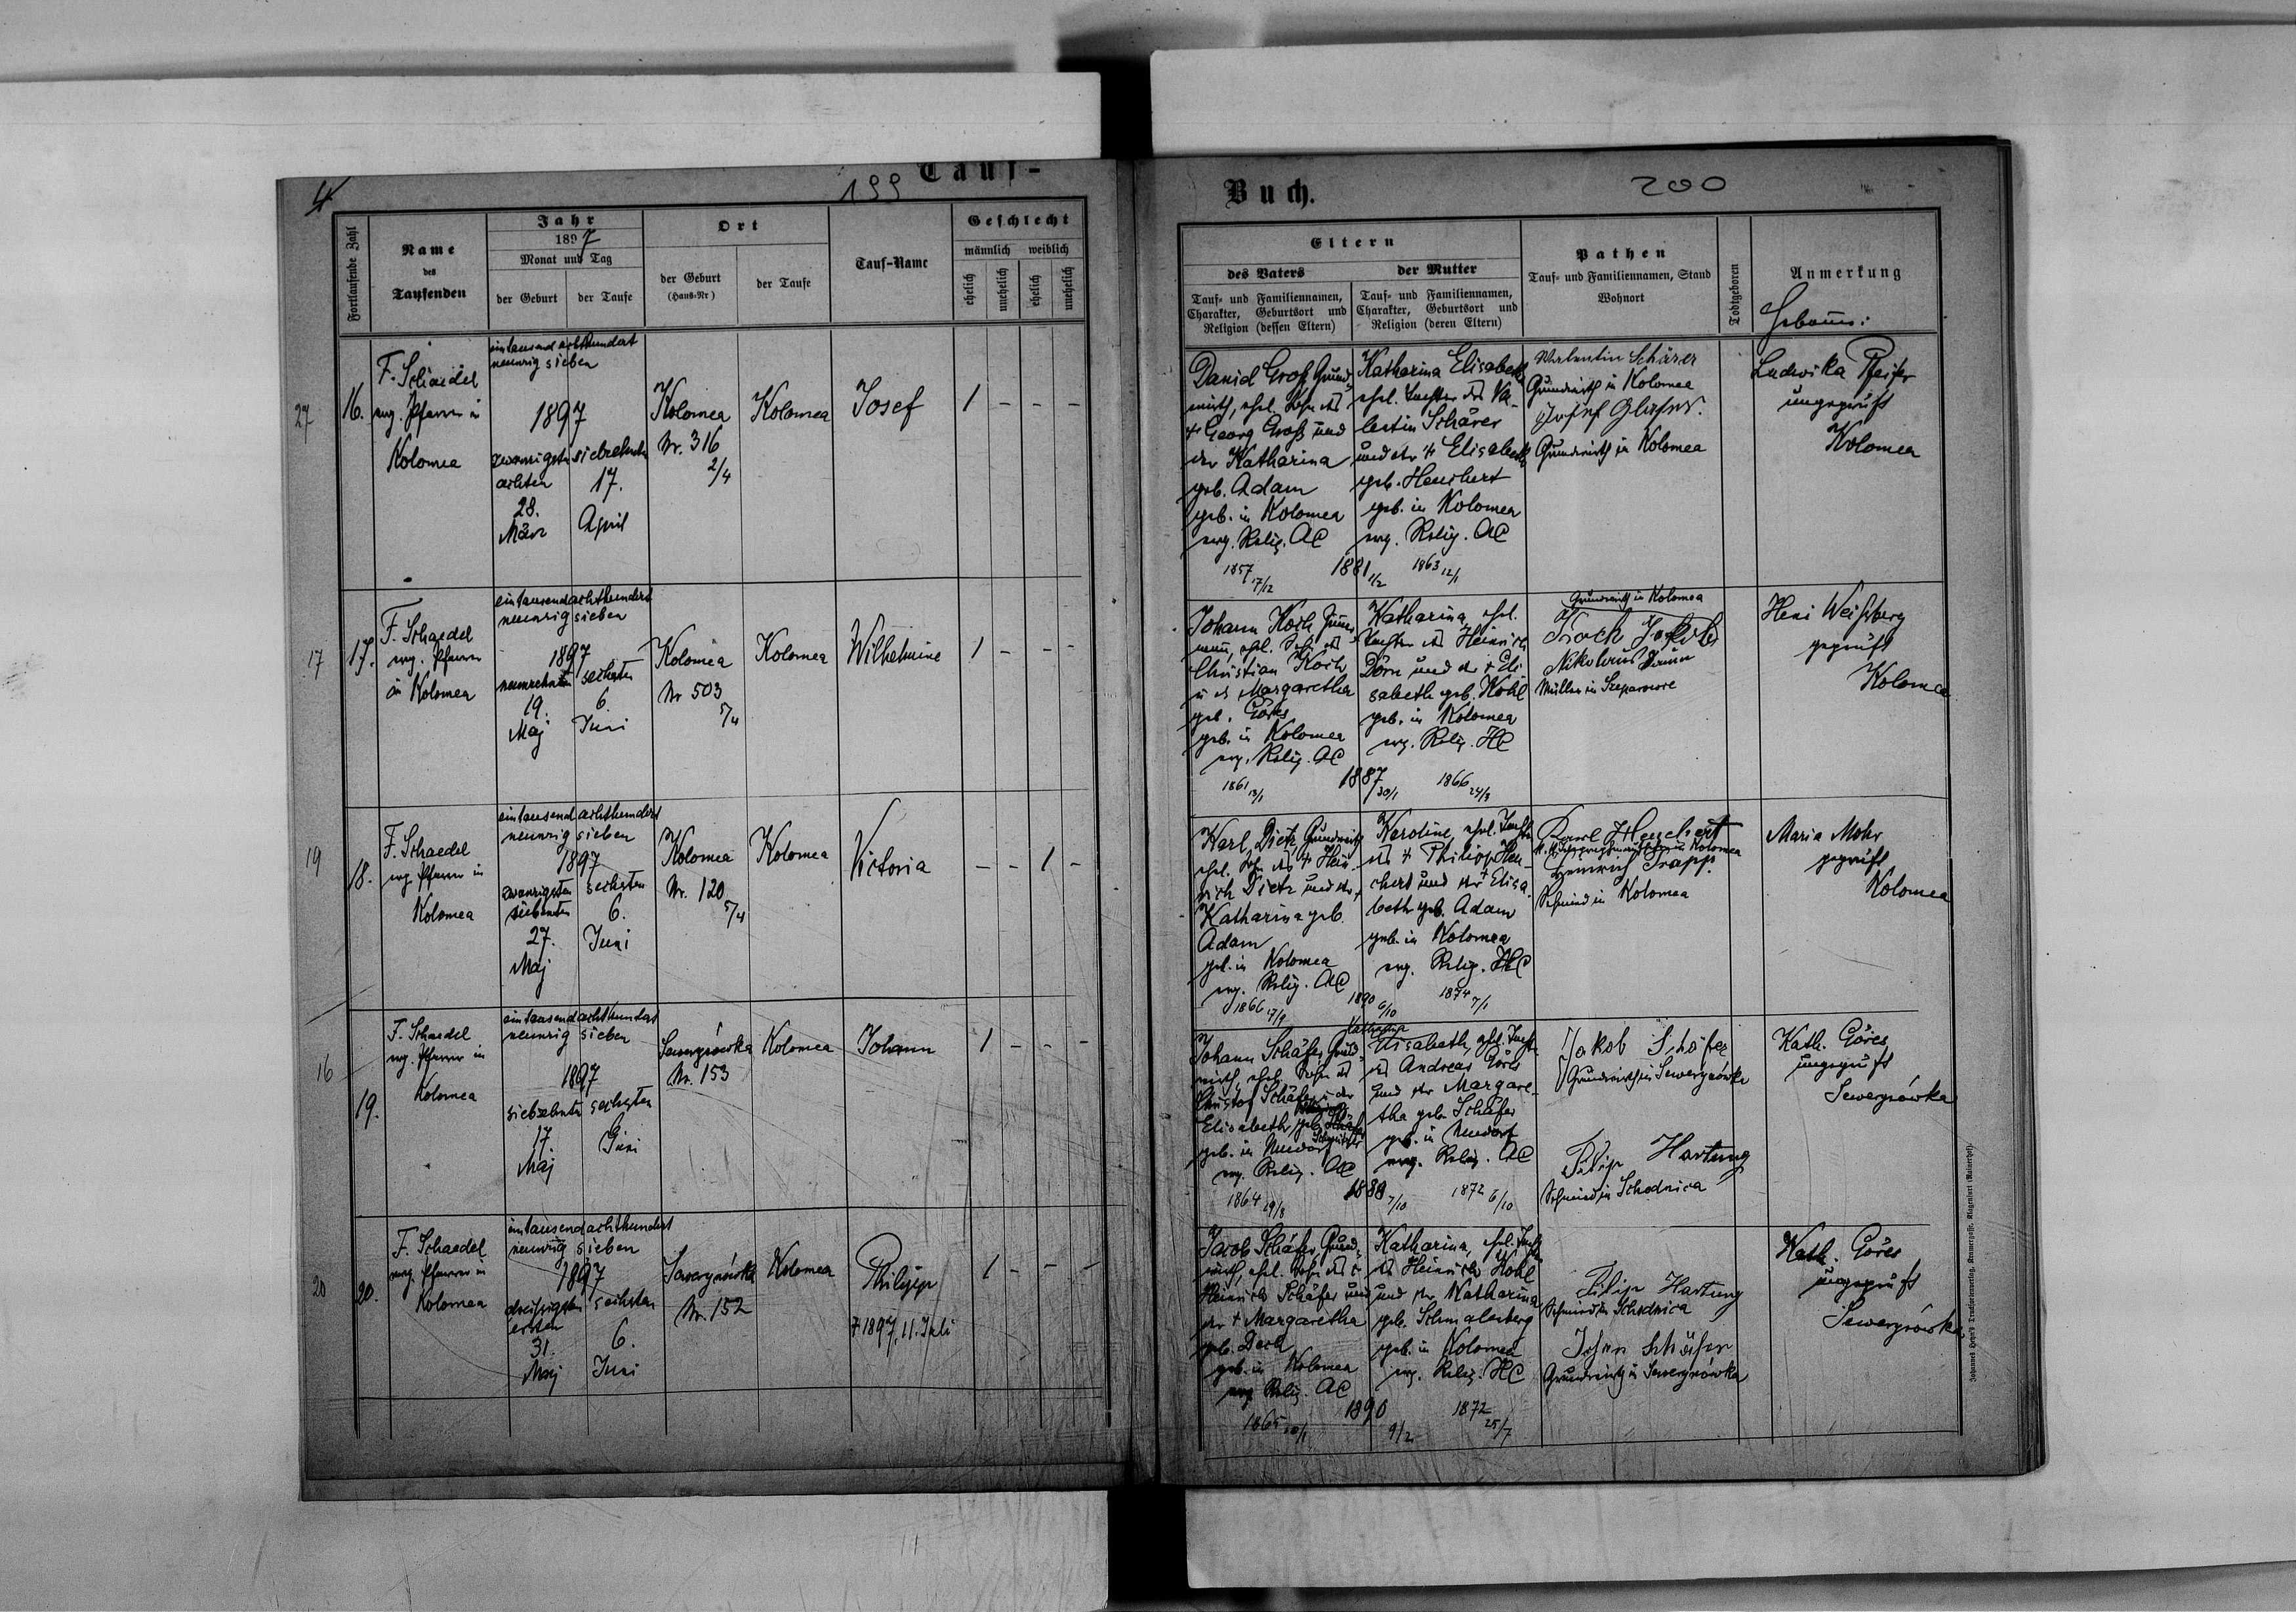 4
199
Tauf-
Fortlaufende Zahl
Name
des
Taufenden
Jahr
1897
Monat und Tag
der Geburt
der Taufe
Ort
der Geburt
(Haus-Nr)
der Taufe
Tauf-Name
Geschlecht
männlich
weiblich
ehelich
unehelich
ehelich
unehelich
27
16.
F. Schaedel
evg. Pfarrer in
Kolomea
eintausend achthundert
neunzig sieben
1897
zwanzigsten
achten
28.
März
siebzehnten
17.
April
Kolomea
Nr. 316
2/4
Kolomea
Josef
1 - - -
17
17.
F. Schaedel
evg. Pfarrer
in Kolomea
eintausendachthundert
neunzig sieben
1897
neunzehnten
19.
Maj
sechsten
6.
Juni
Kolomea
Nr 503
5/4
Kolomea
Wilhelmine
1 - - -
19
18.
F. Schaedel
evg. Pfarrer in
Kolomea
eintausend achthundert
neunzig sieben
1897
zwanzigsten
siebenten
27.
Maj
sechsten
6.
Juni
Kolomea
Nr. 120
5/4
Kolomea
Victoria
- - 1 -
16
19.
F. Schaedel
evg. Pfarrer in
Kolomea
eintausend achthundert
neunzig sieben
1897
siebzehnten
17.
Maj
sechsten
Juni
Sewerynówka
Nr. 153
Kolomea
Johann
1 - - -
20
20.
F. Schaedel
evg. Pfarrer in
Kolomea
eintausend achthundert
neunzig sieben
1897
dreißigsten
ersten
31.
Maj
sechsten
6.
Juni
Sewerynówka
Nr. 152
Kolomea
Philipp
† 1897, 11. Juli
1 - - -
Buch.
200
Eltern
des Vaters
Tauf- und Familiennamen,
Charakter, Geburtsort und
Religion (dessen Eltern)
der Mutter
Tauf- und Familiennamen,
Charakter, Geburtsort und
Religion (deren Eltern)
Pathen
Tauf- und Familiennamen, Stand
Wohnort
Todtgeboren
Anmerkung
Hebamm:
Daniel Groß, Grund-
wirth, ehel. Sohn des
† Georg Groß und
der Katharina
geb. Adam
geb. in Kolomea
evg. Relig. AC
1857 17/12
1881 1/2
Katharina Elisabeth
ehel. Tochter des Va-
lentin Schärer
und der † Elisabeth
geb. Heuchert
geb. in Kolomea
evg. Relig. AC
1863 12/1
Valentin Schärer
Grundwirth in Kolomea
Josef Glaser.
Grundwirth in Kolomea
Ludwika Pfeifer
ungeprüft
Kolomea
Johann Koch
ehel. Sohn des
Christian Koch
u. d. Margaretha
geb. Göres
geb. in Kolomea
evg. Relig. AC
1861 13/1
1887 30/1
Katharina, ehel.
Tochter des Heinrich
Dörn und der † Eli-
sabeth geb. Kohl
geb. in Kolomea
evg. Relig. HC
1866 24/3
Grundwirth in Kolomea
Nikolaus
Müller in Szeparowce
Heni Weißberg
geprüft
Kolomea
Karl Dietz, Grundwirth
ehel. Sohn des † Hein-
rich Dietz und der
Katharina geb.
Adam
geb. in Kolomea
evg. Relig. AC
1866 17/9
1890 6/10
Karoline, ehel. Tochter
des † Philipp Heu-
chert und der Elisa-
beth geb. Adam
geb. in Kolomea
evg. Relig. HC
1874 7/1
Karl Heuchert
Heinrich Trapp.
Schmied in Kolomea
Maria Mohr
geprüft
Kolomea
Johann Schäfer, Grund-
wirth, ehel. Sohn des
Christof Schäfer u. der
Elisabeth, geb.
Schmidter
geb. in Neudorf
evg. Relig. AC
1864 19/8
1889 7/10
Katharina
Elisabeth, ehel. Tocht.
des Andreas Göres
und der Margare-
tha geb. Schäfer
geb. in Neudorf
evg. Relig. AC
1872 6/10
Jakob Schäfer
Grundwirth in Sewerynówka
Filip Hartung
Schmied in Schodnica
Kath. Göres
ungeprüft
Sewerynówka
Jacob Schäfer, Grund-
wirth, ehel. Sohn des †
Heinrich Schäfer und
der † Margaretha
geb. Dech
geb. in Kolomea
evg. Relig. AC
1865 10/1
1890 9/2
Katharina, ehel. Tocht.
des Heinrich Kohl
und der Katharina
geb. Schmalenberg
geb. in Kolomea
evg. Relig. HC
1872 25/7
Filip Hartung
Schmied in Schodnica
Johan Schäfer
Grundwirth in Sewerynówka
Kath. Göres
ungeprüft
Sewerynówka